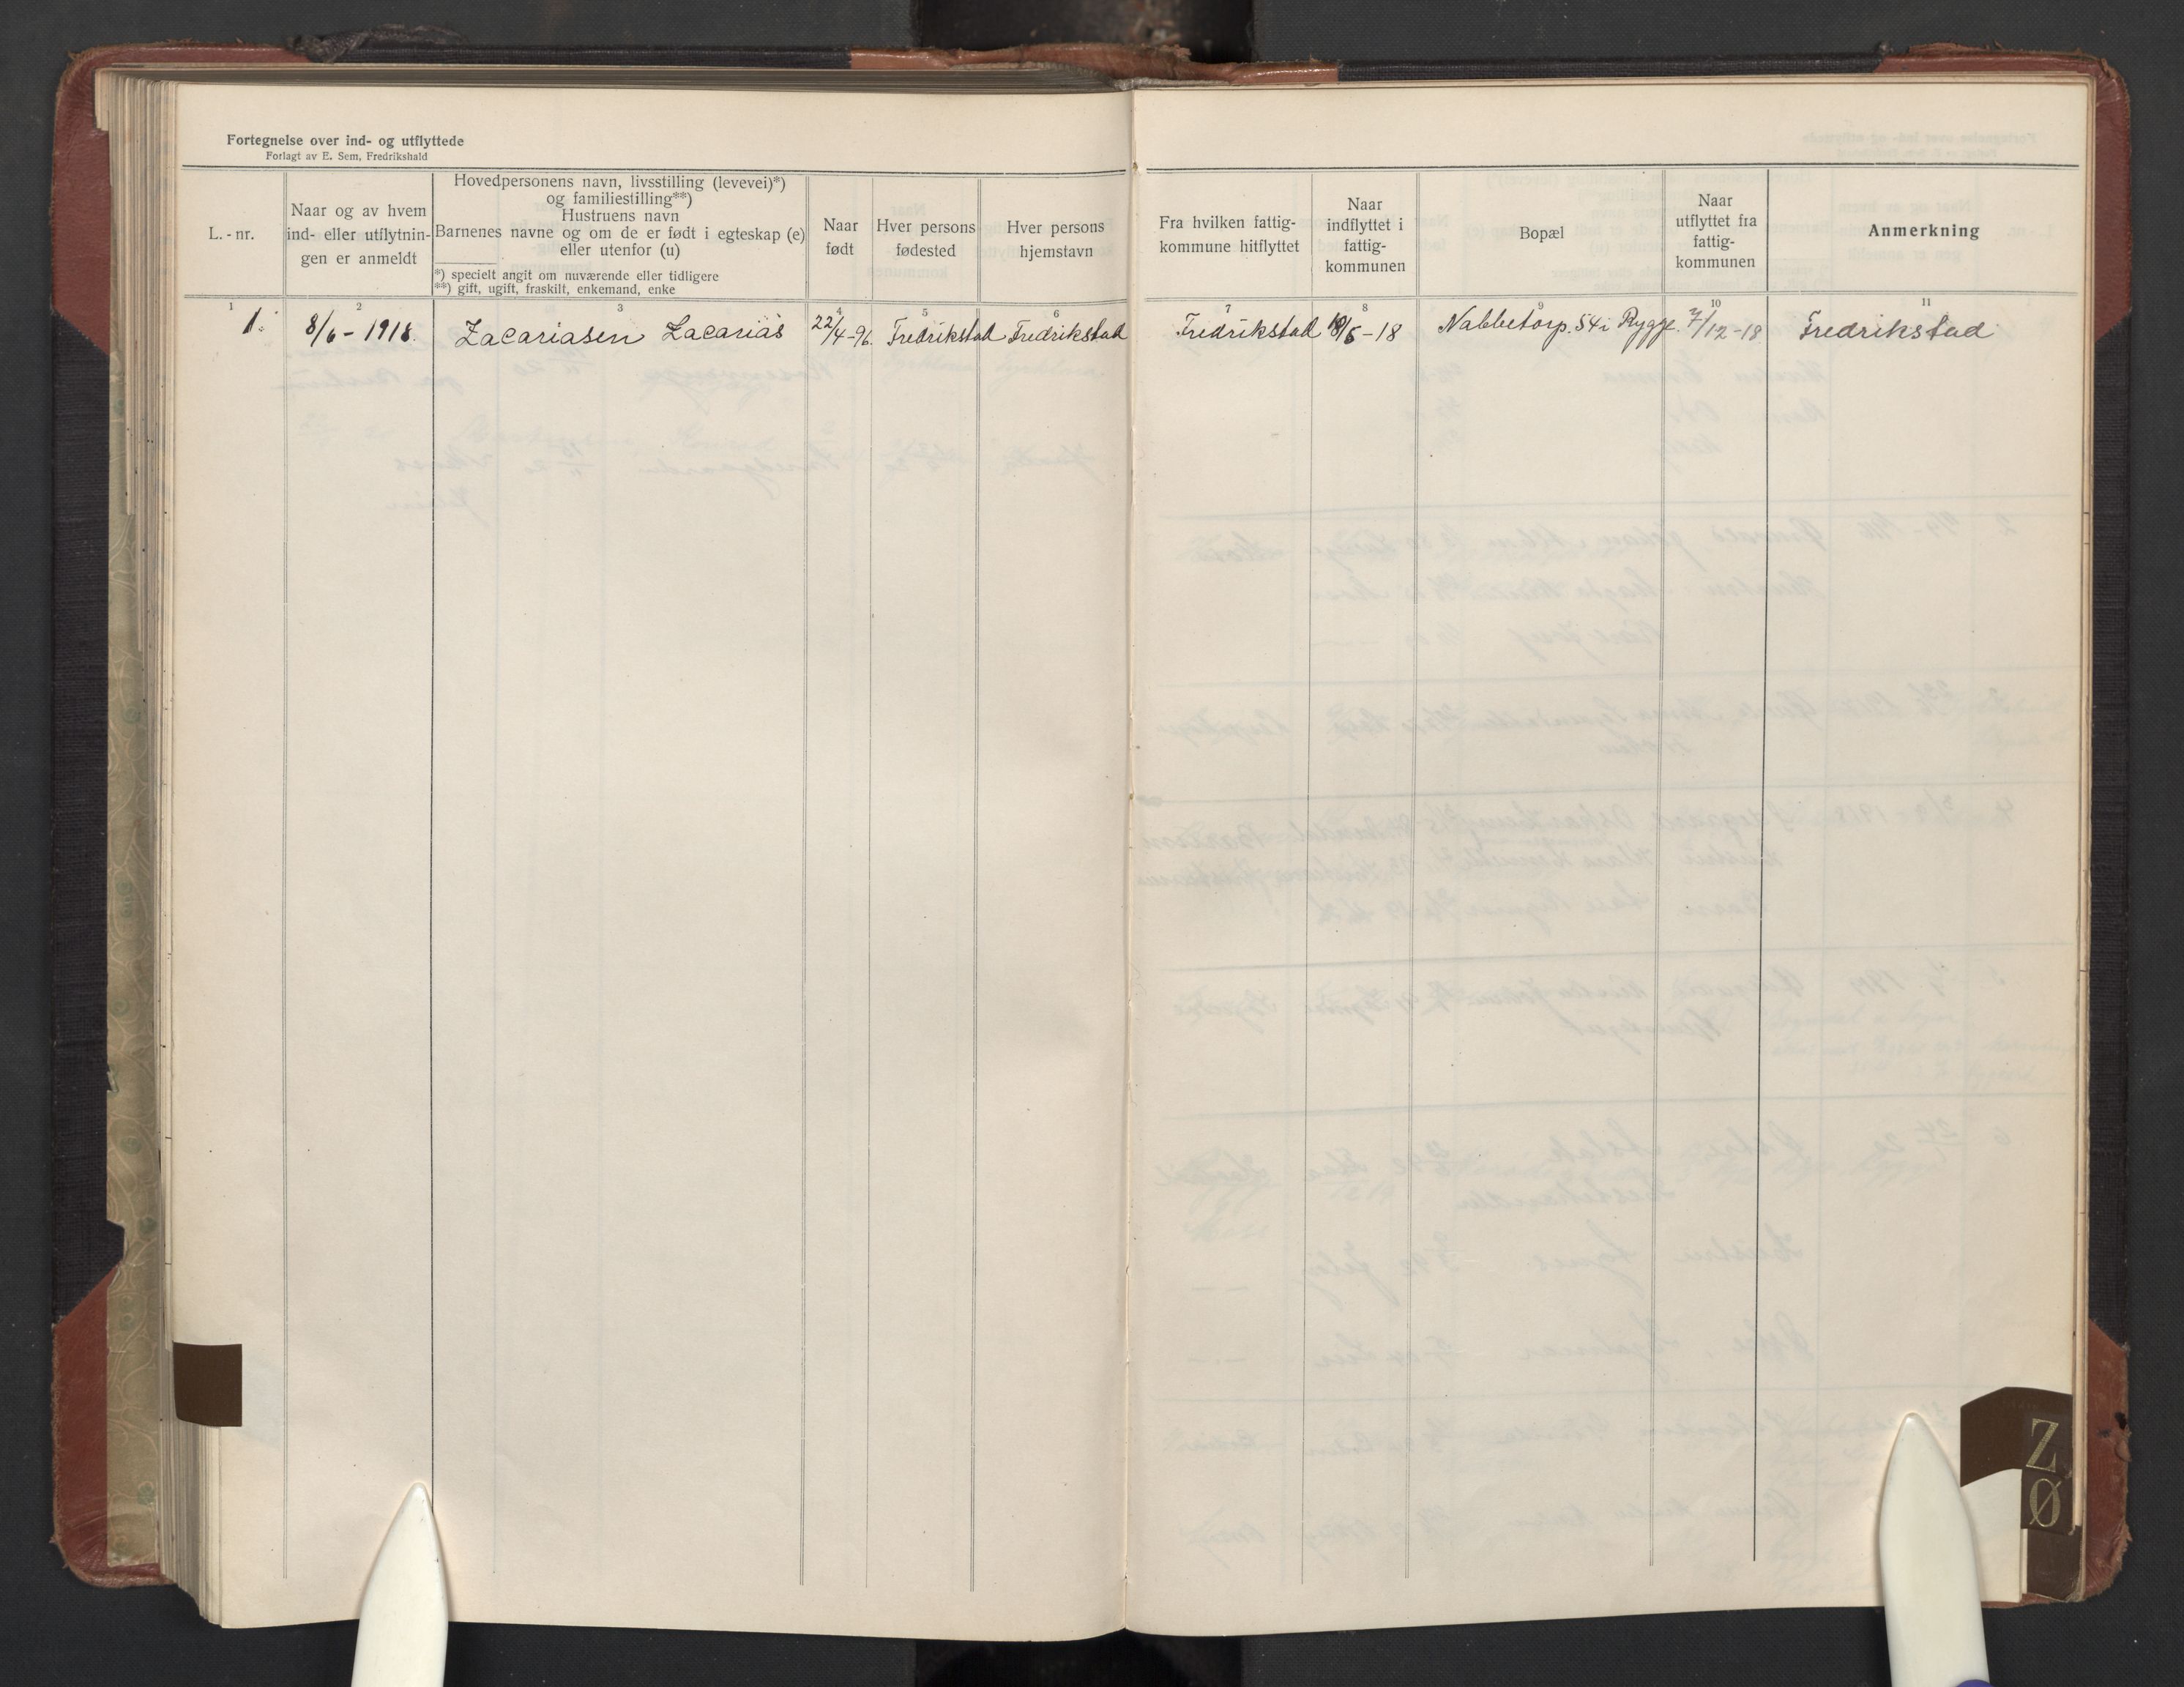 Fortegnelse over ind- og utflyttede
Forlagt av E. Sem, Fredrikshald
L.-nr.
Naar og av hvem
ind- eller utflytnin-
gen er anmeldt
Hovedpersonens navn, livsstilling (levevei)*)
og familiestilling**)
Hustruens navn
Barnenes navne og om de er født i egteskap (e)
eller utenfor (u)
*) specielt angit om nuværende eller tidligere
**) gift, ugift, fraskilt, enkemand, enke
Naar
født
Hver persons
fødested
Hver persons
hjemstavn
Fra hvilken fattig-
kommune hitflyttet
Naar
indflyttet i
fattig-
kommunen
Bopæl
Naar
utflyttet fra
fattig-
kommunen
Anmerkning
1 2 3 4 5 6 7 8 9 10 11
1. 8/6-1918. Zacariasen Zacarias 22/4-96. Fredrikstad Fredrikstad Fredrikstad /6-18 Nabbetorp. 54 i Rygge. 7/12-18 Fredrikstad
Z,
Ø